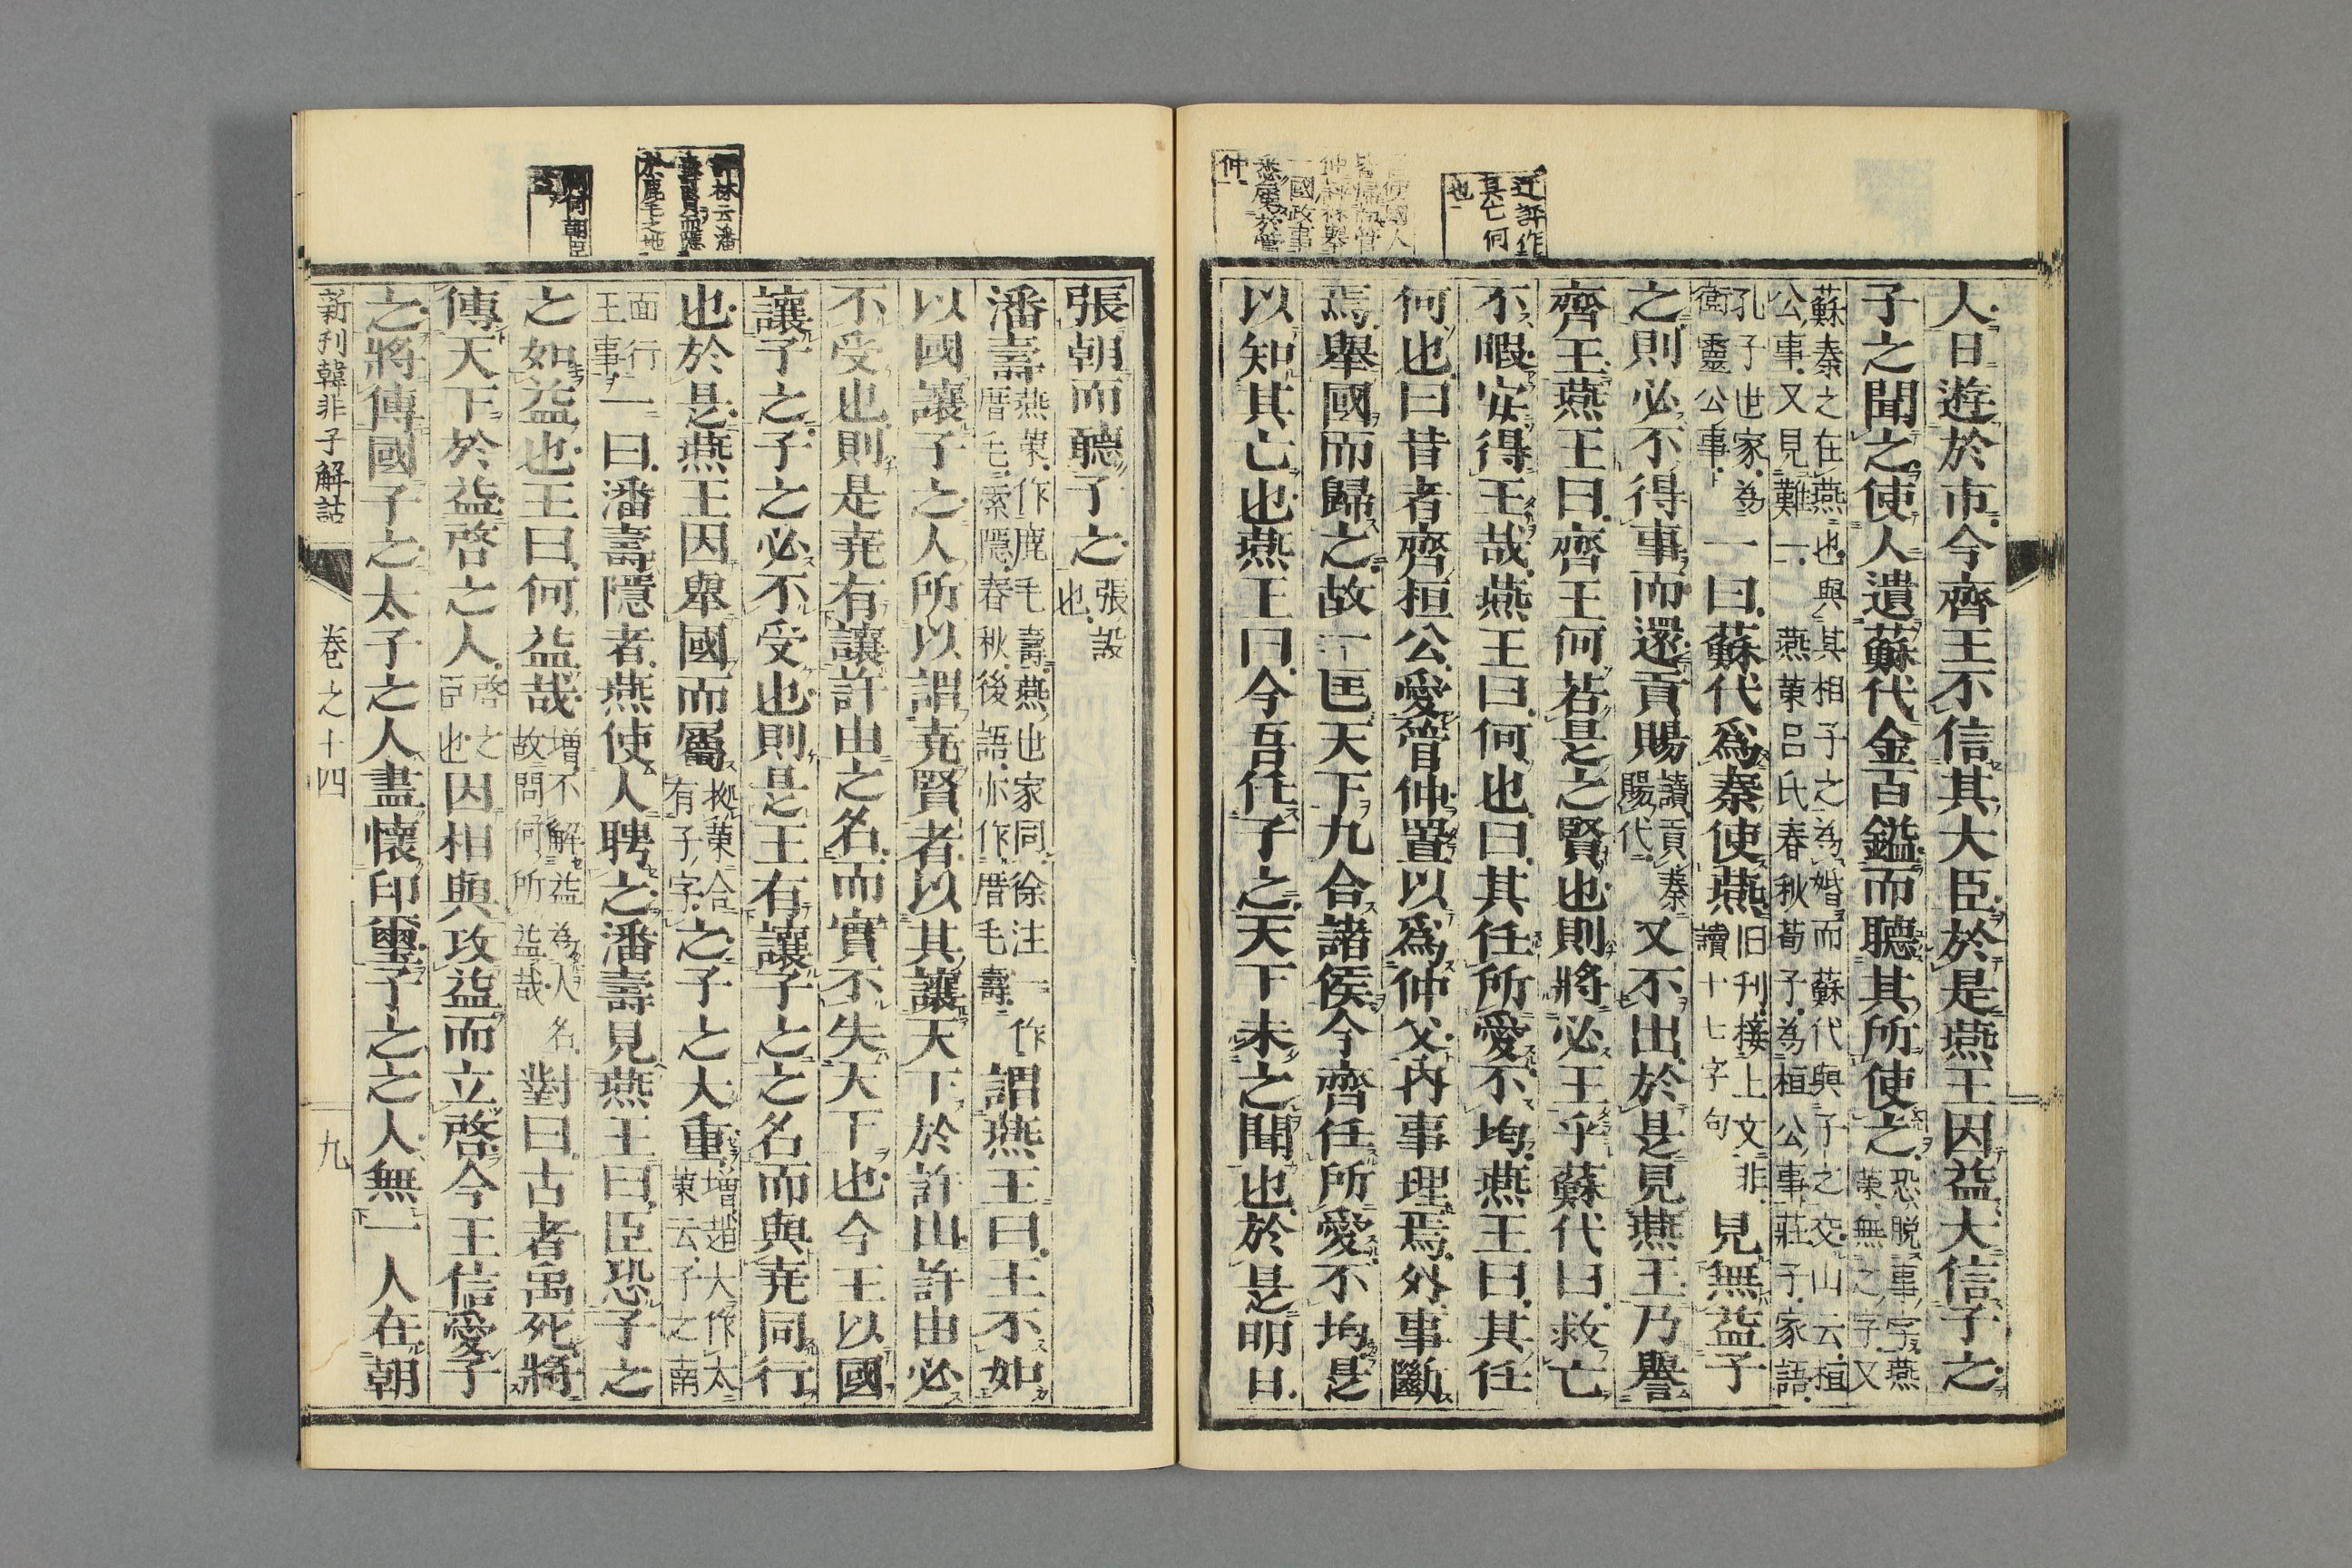 迂評作
其亡何
也
仲評林舉
一國政事
悉屬於管
仲
人曰遊於市今齊王不信其大臣於是燕王因益大信子之
子之聞之使人遺蘇代金百鎰而聽其所使之
恐脱事字燕
策無之字又
蘇秦之在燕也與其相子之為婚而蘇代與子之交山云桓
公事又見難一燕策呂氏春秋荀子為桓公事莊子家語
孔子世家為
衛靈公事
一曰蘇代爲秦使燕
旧刊接上文非
讀十七字句
見無益子
之則必不得事而還貢賜
讀貢秦
賜代
又不出於是見燕王乃譽
齊王燕王曰齊王何若是之賢也則將必王乎蘇代曰救亡
不暇安得王哉燕王曰何也曰其任所愛不均燕王曰其任
何也曰昔者齊桓公愛管仲置以爲仲父內事理焉外事斷
焉舉國而歸之故一匡天下九合諸侯今齊任所愛不均是
以知其亡也燕王曰今吾任子之天下未之聞也於是明日
評林云潘
壽賢而隱
於鹿毛之地
張朝而聽子之
張設
也
潘壽
燕策作鹿毛壽燕也家同徐注一作
厝毛索隱春秋後語亦作厝毛壽
謂燕王曰王不如
以國讓子之人所以謂堯賢者以其讓天下於許由許由必
不受也則是堯有讓許由之名而實不失天下也今王以國
讓子之子之必不受也則是王有讓子之之名而與堯同行
也於是燕王因舉國而屬
拠策合
有子字
之子之大重
増趙大作太
策云子之南
面行
王事
一曰潘壽隱者燕使人聘之潘壽見燕王曰臣恐子之
之如益也王曰何益哉
増不解益為人名
故問何所益哉
對曰古者禹死將
傳天下於益啓之人
啓之
臣也
因相與攻益而立啓今王信愛子
之將傳國子之太子之人盡懷印璽子之之人無一人在朝
新刊韓非子解詁 卷之十四 九